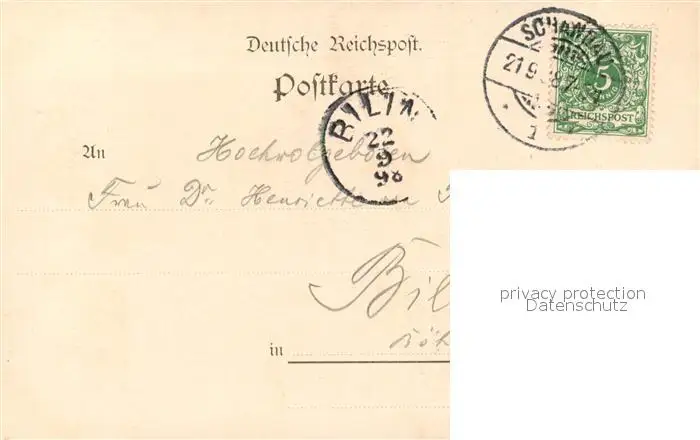 Deutsche Reichspost.
Postkarte
SCHANDAU
21 9 98
5
REICHSPOST
BILIN
22
9
98
An
Hochwolgeboren
Frau Dr. Henriette
Bil
in
privacy protection
Datenschutz